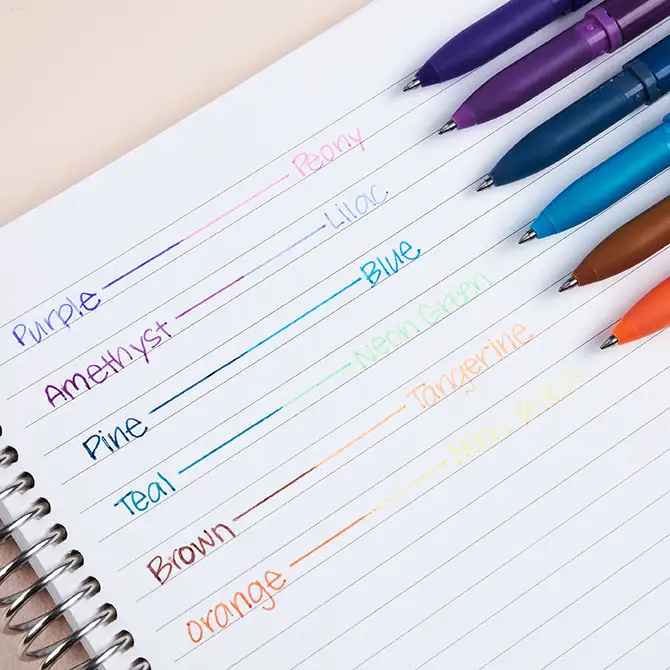 Purple Peony
Amethyst Lilac
Pine Blue
Teal Neon Green
Brown Tangerine
orange Neon Yellow